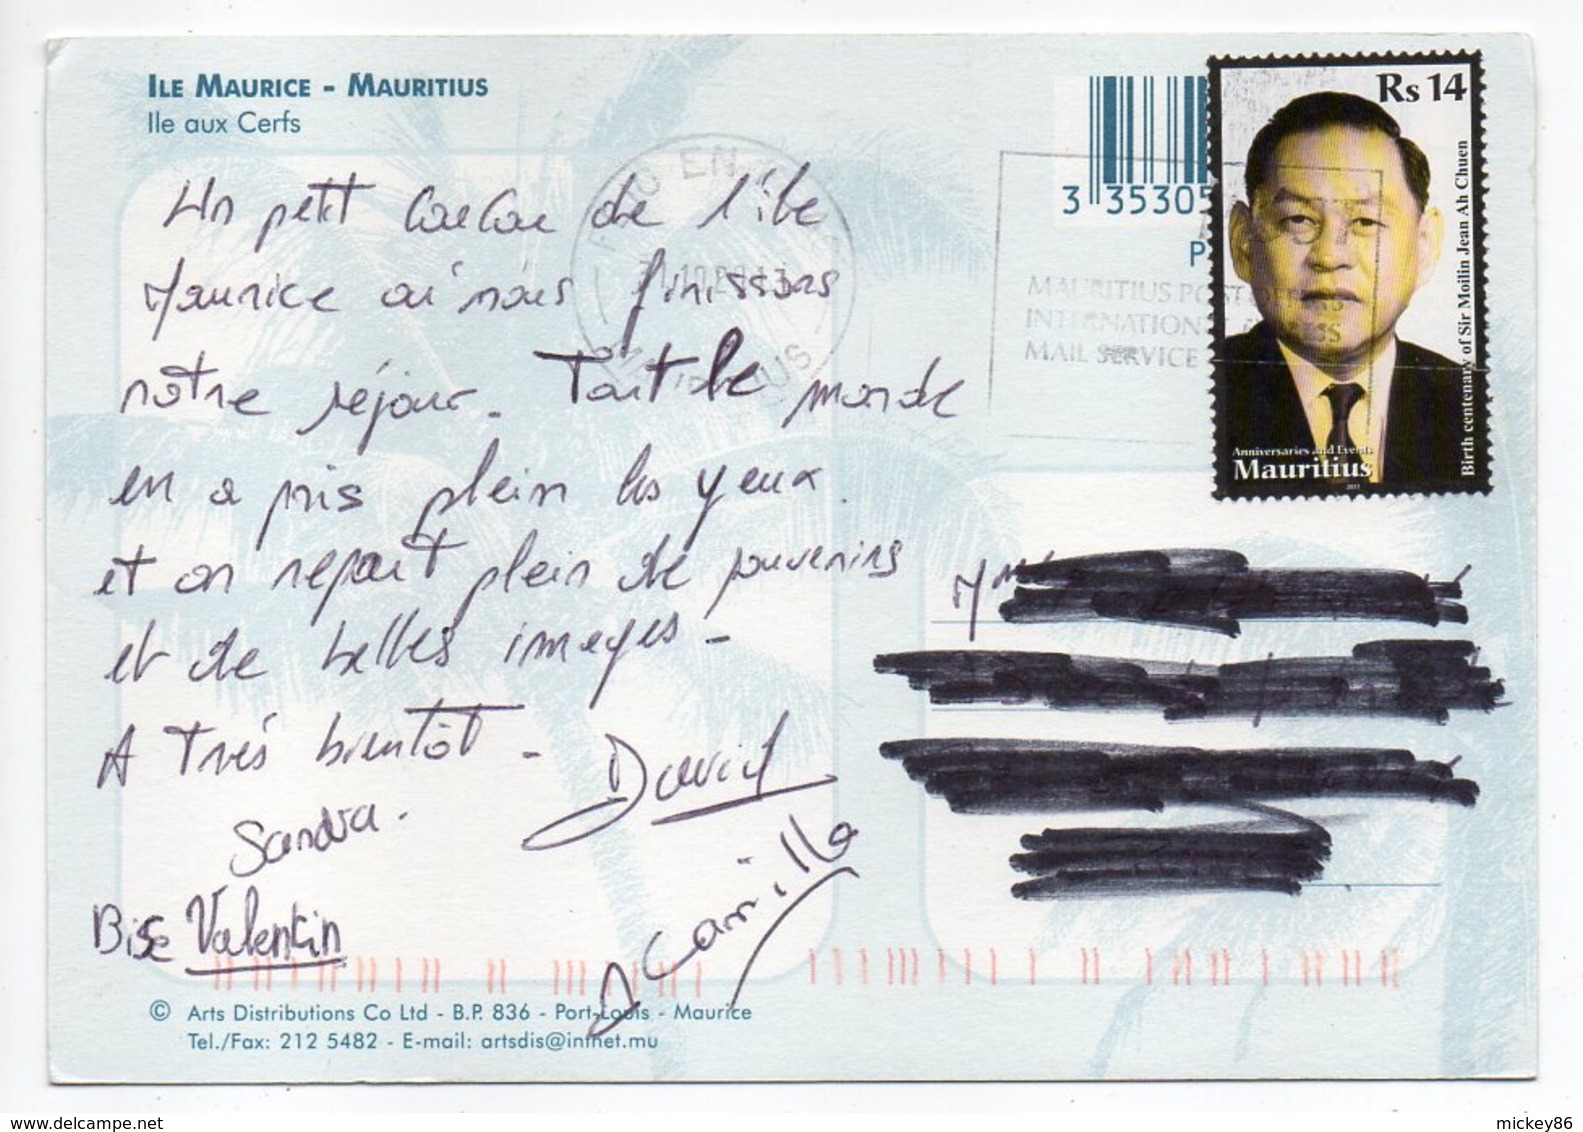 ILE MAURICE - MAURITIUS
Ile aux Cerfs
Un petit coucou de l'île
Maurice où nous finissons
notre séjour. Tout le monde
en a pris plein les yeux.
et on repart plein de souvenirs
et de belles images -
A très bientôt - David
Sandra.
Camilla
Bise Valentin
© Arts Distributions Co Ltd - B.P. 836 - Port-Louis - Maurice
Tel./Fax: 212 5482 - E-mail: artsdis@intnet.mu
3 35305
P
MAURITIUS POST
INTERNATION
MAIL SERVICE
Rs 14
Birth centenary of Sir Moilin Jean Ah Chuen
Anniversaries and Events
Mauritius
2011
mickey86